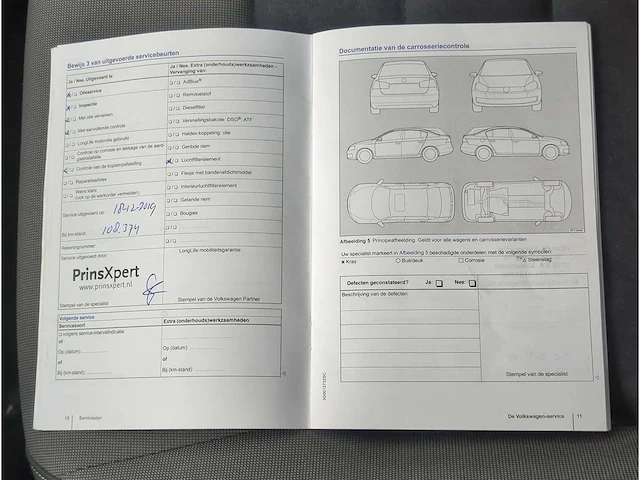 Bewijs 3 van uitgevoerde servicebeurten
Ja / Nee. Uitgevoerd is:
Olieservice
Inspectie
Met olie verversen
Met aanvullende controle
LongLife motorolie gebruikt
Controle op corrosie en lekkage van de aard-
gasinstallatie
Controle van de koplampafstelling
Reparatieadvies
Wens klant
(ook op de werkorder vermelden)
Service uitgevoerd op: 18-12-2019
Bij km-stand: 108.374
Rekeningnummer:
Service uitgevoerd door:
PrinsXpert
www.prinsxpert.nl
Stempel van de specialist
Ja / Nee. Extra (onderhouds)werkzaamheden -
Vervanging van:
AdBlue®
Remvloeistof
Dieselfilter
Versnellingsbakolie: DSG®, ATF
Haldex-koppeling: olie
Geribde riem
Luchtfilterelement
Flesje met bandenafdichtmiddel
Interieurluchtfilterelement
Getande riem
Bougies
LongLife mobiliteitsgarantie:
Stempel van de Volkswagen Partner
Volgende service
Servicesoort
Extra (onderhouds)werkzaamheden
volgens service-intervalindicatie
of
Op (datum):
of
Bij (km-stand):
Op (datum):
of
Bij (km-stand):
10 Serviceplan
Documentatie van de carrosseriecontrole
Afbeelding 5 Principeafbeelding: Geldt voor alle wagens en carrosserievarianten
Uw specialist markeert in Afbeelding 5 beschadigde onderdelen met de volgende symbolen:
× Kras
○ Buil/deuk
□ Corrosie
△ Steenslag
Defecten geconstateerd? Ja: Nee:
Beschrijving van de defecten:
Stempel van de specialist
De Volkswagen-service 11